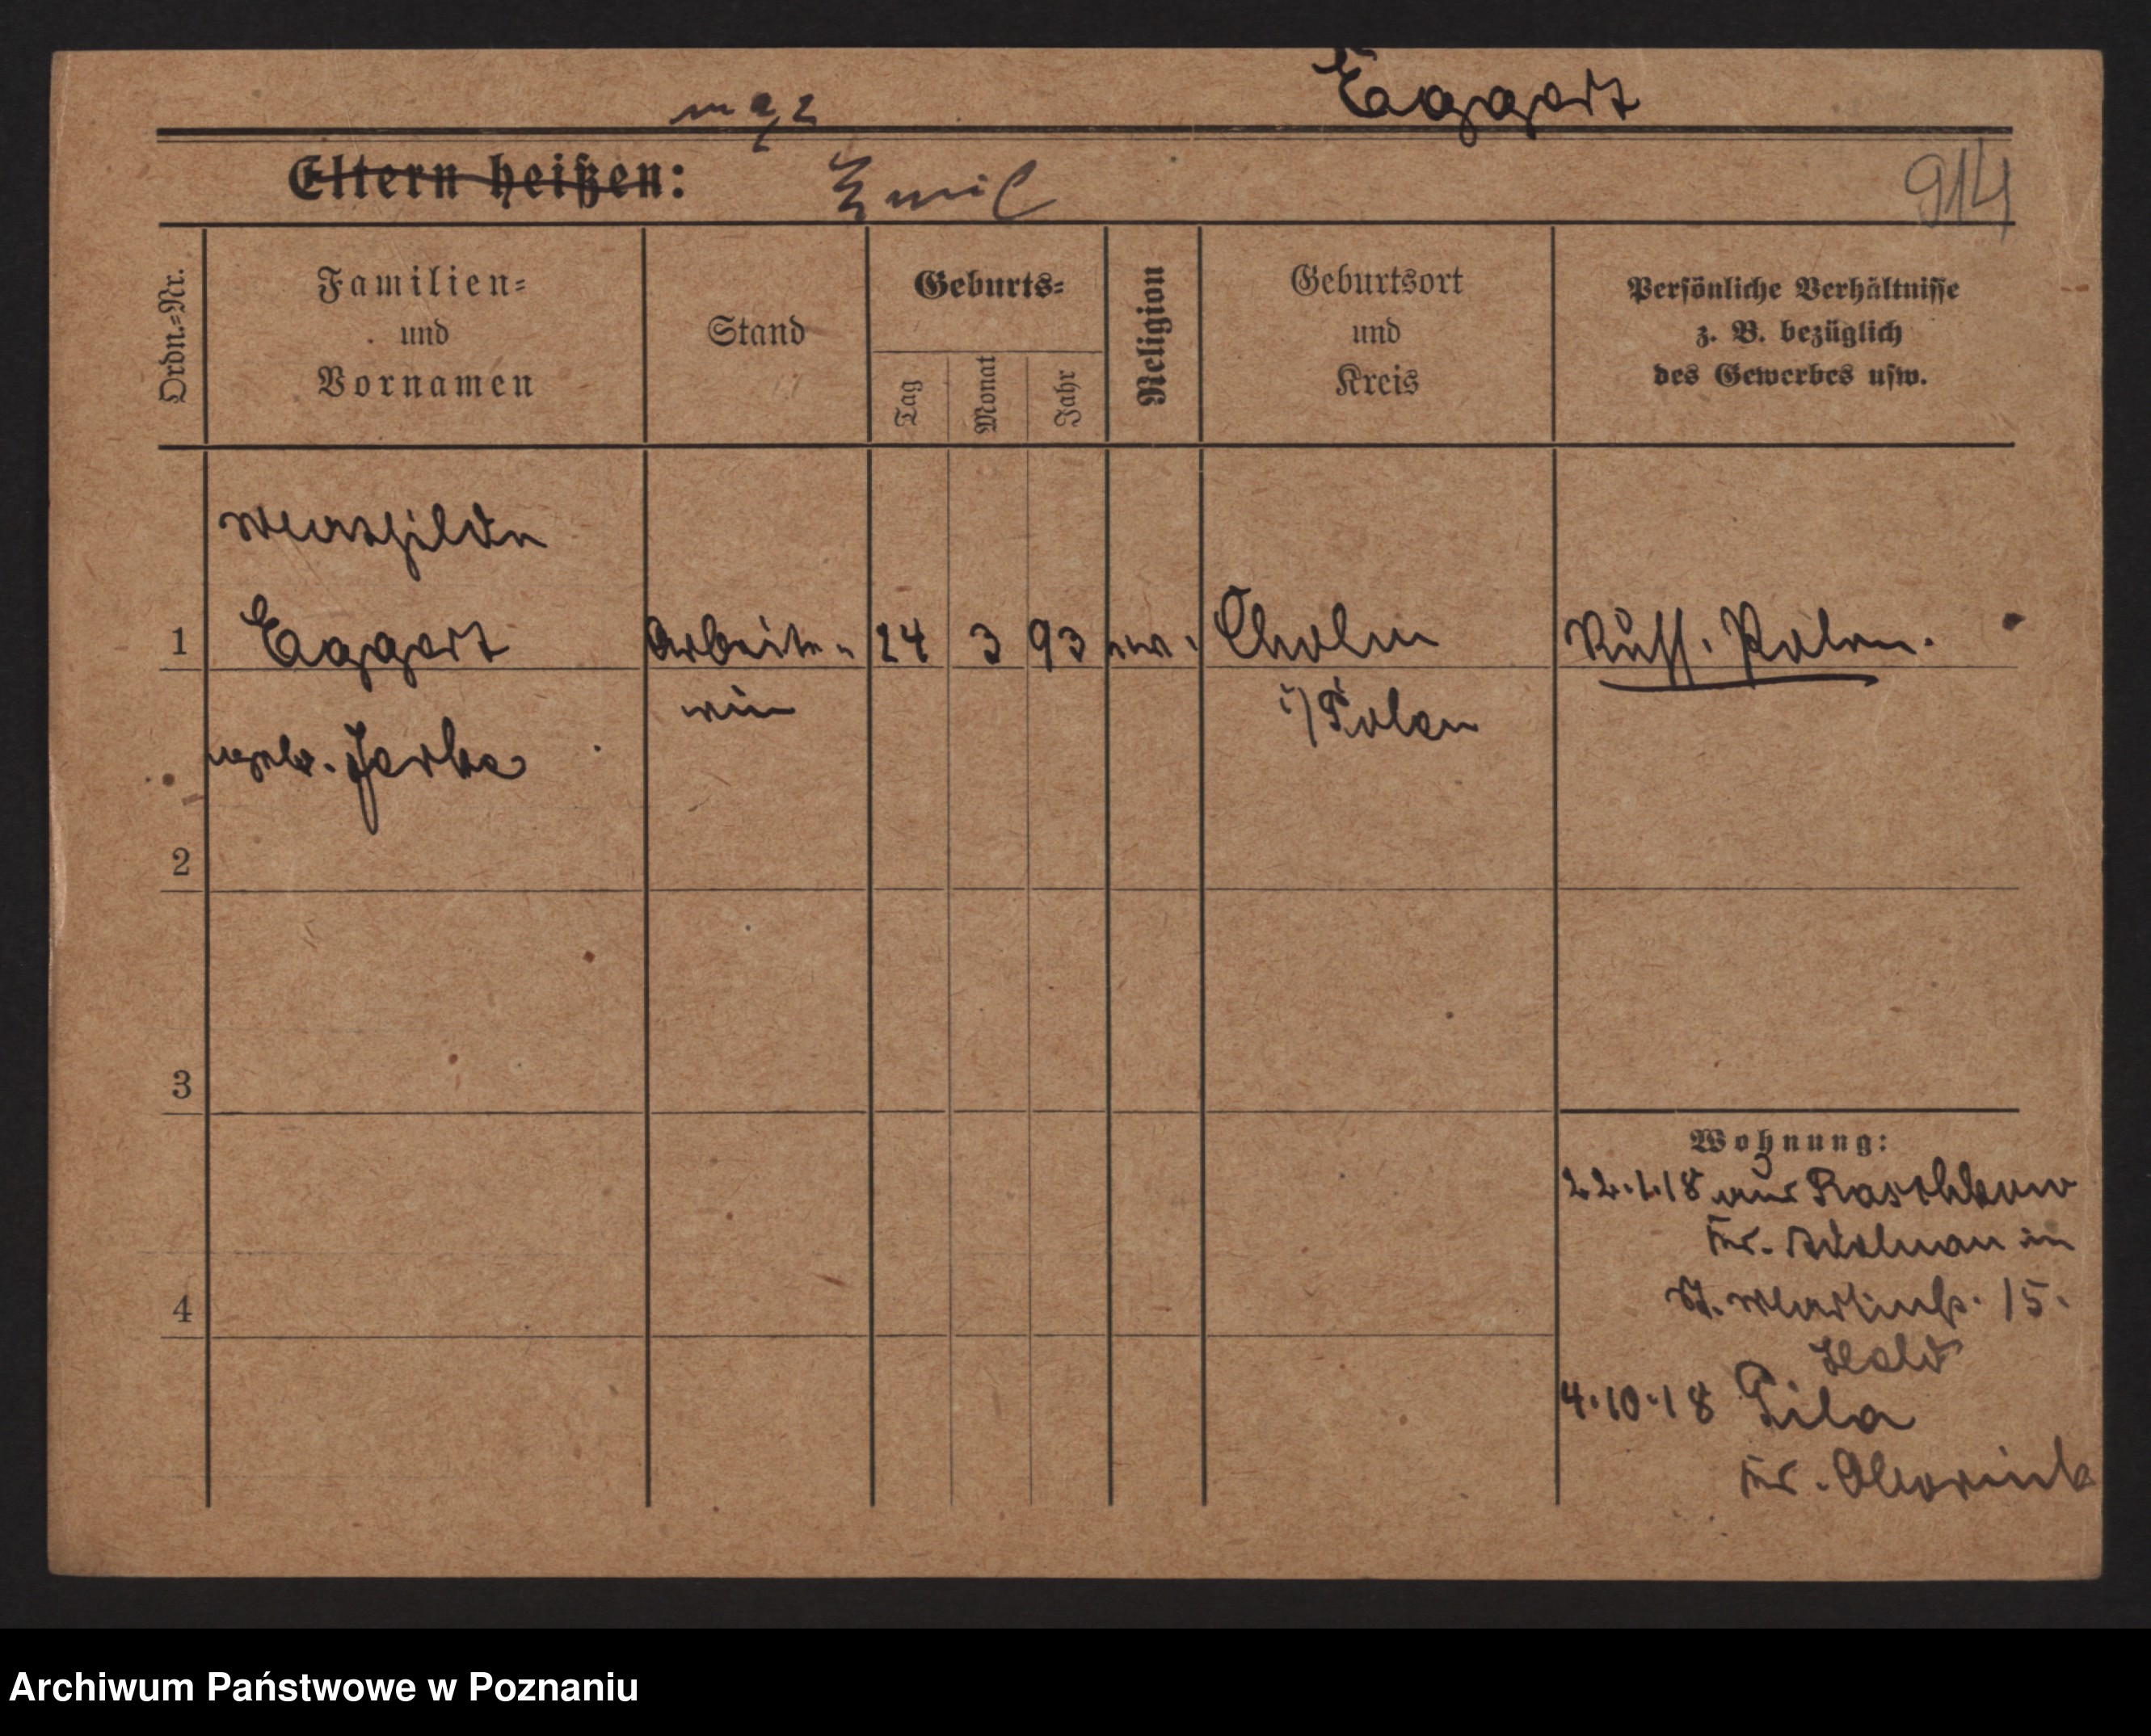 Eggert
mąż
Eltern heißen: Emil
914
Ordn.=Nr.
Familien=
und
Vornamen
Stand
Geburts=
Tag
Monat
Jahr
Religion
Geburtsort
und
Kreis
Persönliche Verhältnisse
z. B. bezüglich
des Gewerbes usw.
Mathilde
1 Eggert Arbeite= 24 3 93 ev. Cholm Russ. Polen.
rin i/Polen
geb. Jarke
2
3
4
Wohnung:
22.1.18 aus Raschkow
Kr. Adelnau in
St. Martinstr. 15.
4.10.18 Pila
Kr.
Archiwum Państwowe w Poznaniu